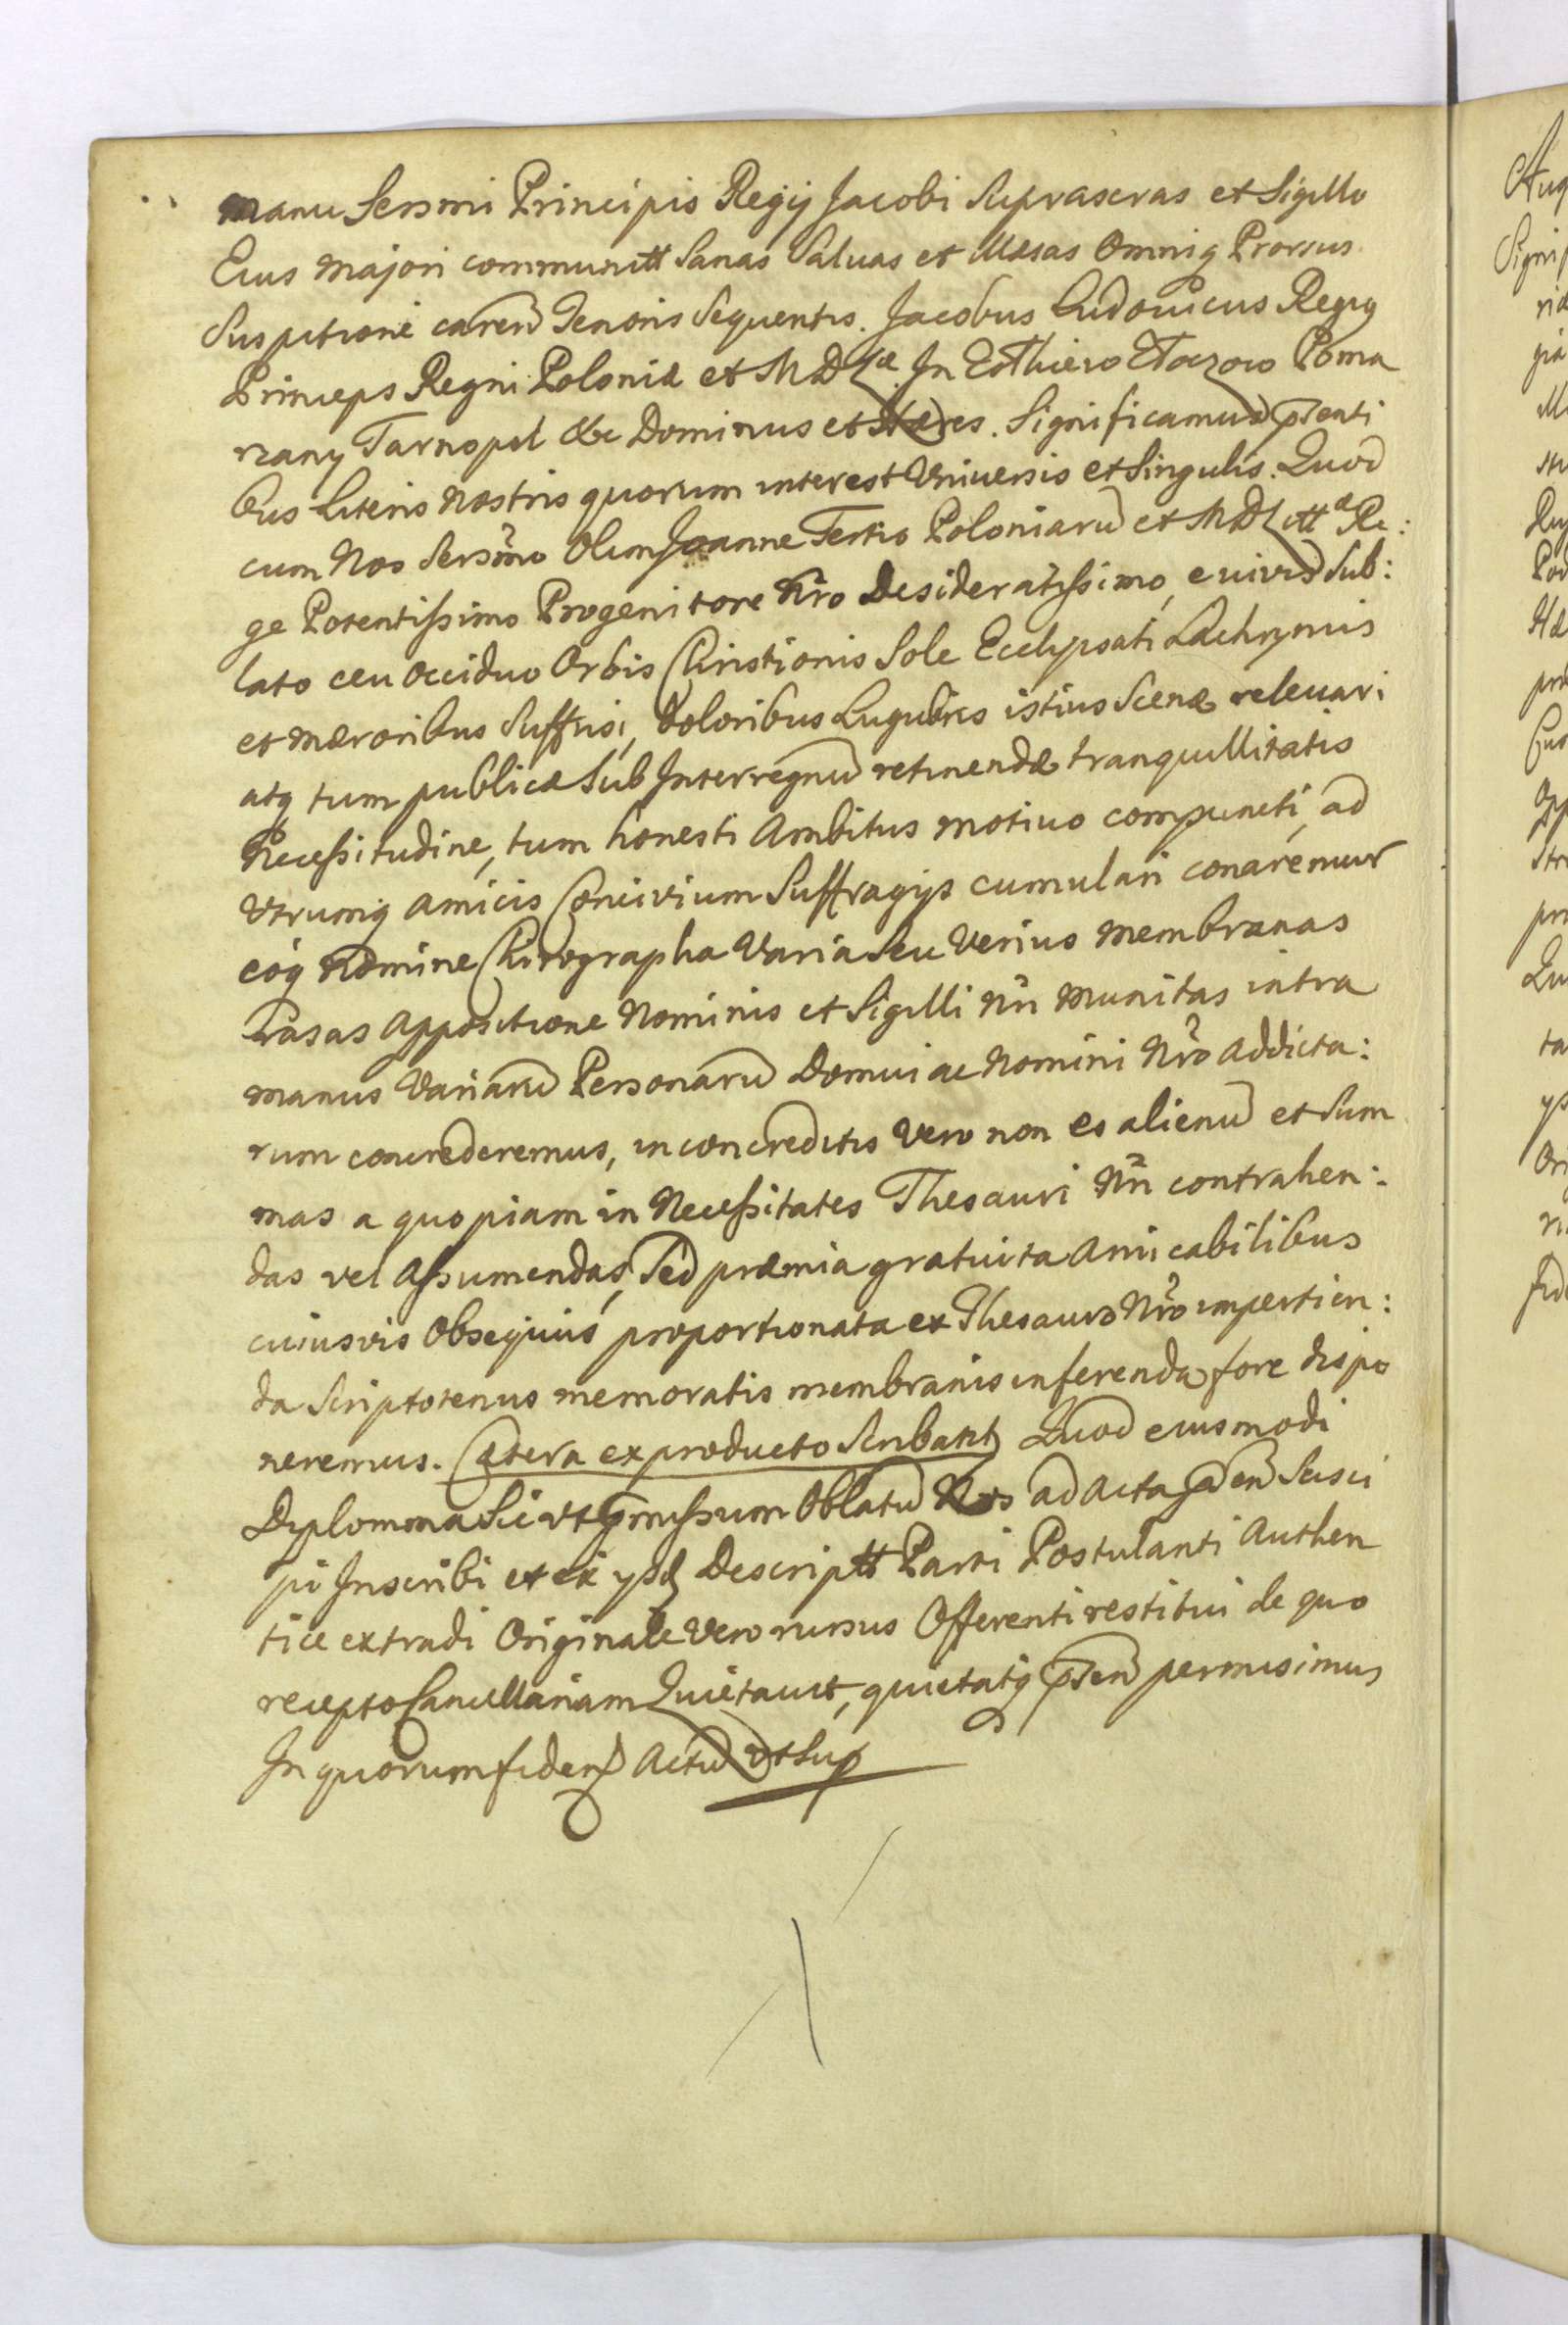 manu Sersmi Principis Regij Jacobi Supraseras et Sigillo
Eius majori communitt Sanas Saluas et Illæsas Omniq Prorsus
Suspitione caren Tenoris Sequentis. Jacobus Ludouicus Regig
Princeps Regni Poloniæ et M D L æ. In Zołkiew Złoczow Poma
rzany Tarnopol &c Dominus et Hæres. Significamus pñti
bus Literis Nostris quorum interest Vniuersis et Singulis. Quod
cum Nos Sersmo Olim Joanne Tertio Poloniaru et M D Litt æ Re:
ge Potentissimo Progenitore Nro Desideratissimo, e uiuis Sub:
lato ceu Occiduo Orbis Christionis Sole Ecclypsati Lachrymis
et mæroribus Suffusi, Doloribus Lugubris istius Scenæ releuari
atq tum publicæ Sub Interregnu retinendæ tranquillitatis
Necessitudine, tum honesti Ambitus motiuo compuncti, ad
Vtrumq amicis Conciuium Suffragijs cumulari conaremur
eoq Nomine Chirographa Varia Seu Verius membranas
rasas Appositione Nominis et Sigilli Nri munitas intra
manus Variaru Personaru Domui ac Nomini Nro Addicta:
rum concrederemus, in concreditis Vero non es alienu et Sum
mas a quopiam in Necessitates Thesauri Nri contrahen:
das vel Assumendas, Sed præmia gratuita Amicabilibus
cuiusvis Obsequiis proportionata ex Thesauro Nro impertien:
da Scriptotenus memoratis membranis inferenda fore dispo
neremus. Cætera ex producto Scribantt Quod eiusmodi
Diplomma Sic vt pmissum Oblatu Nos ad Acta pñ Susci
pi Inscribi et ex ysd Descriptt Parti Postulanti Authen
tice extradi Originale Vero rursus Offerenti restitui de quo
recepto Cancellariam Quietauit, quietatq pñ permisimus
In quorum fidem Actu vt Sup